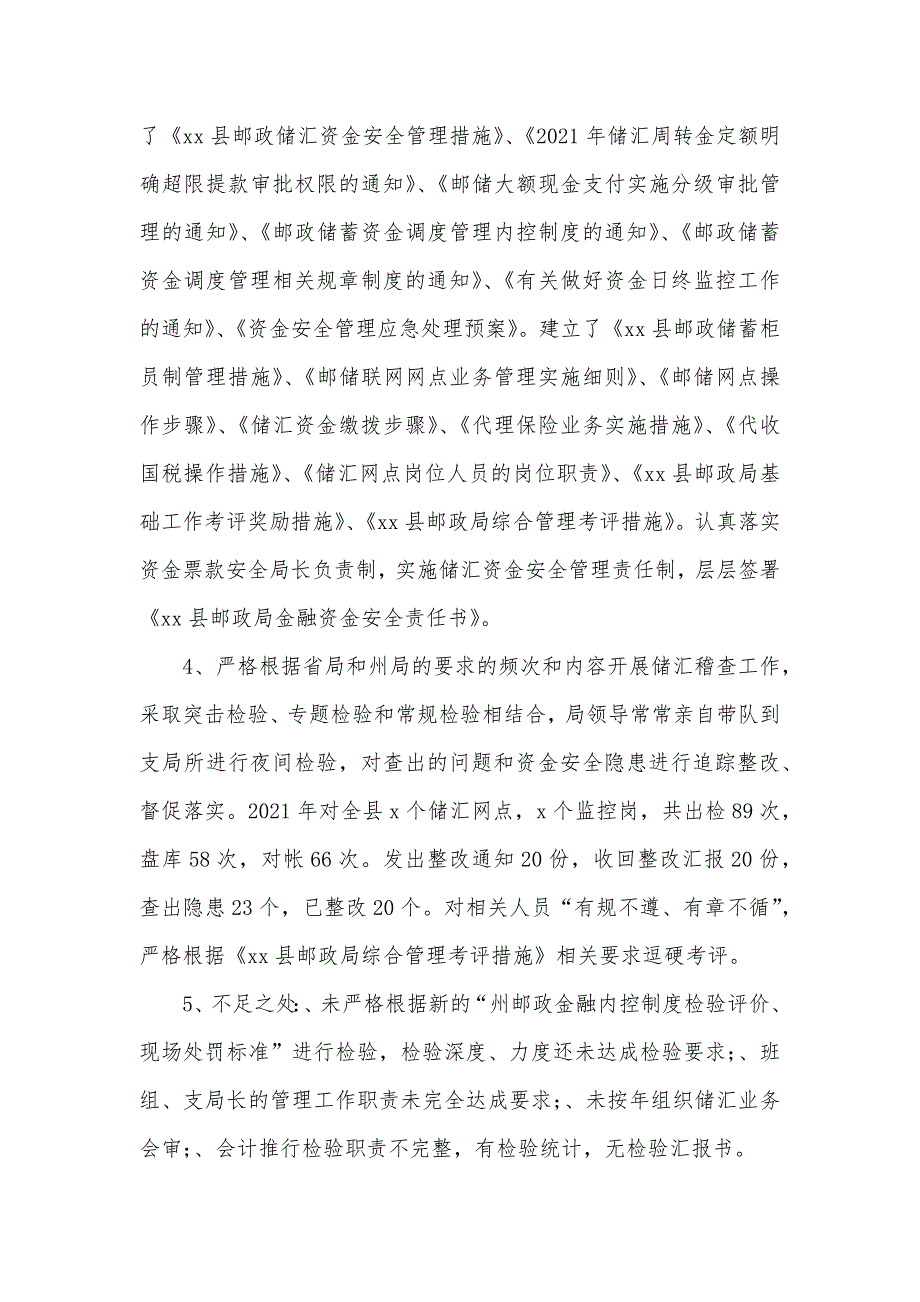 了《xx 县邮政储汇资金安全管理措施》、《2021 年储汇周转金定额明
确超限提款审批权限的通知》、《邮储大额现金支付实施分级审批管
理的通知》、《邮政储蓄资金调度管理内控制度的通知》、《邮政储蓄
资金调度管理相关规章制度的通知》、《有关做好资金日终监控工作
的通知》、《资金安全管理应急处理预案》。建立了《xx 县邮政储蓄柜
员制管理措施》、《邮储联网网点业务管理实施细则》、《邮储网点操
作步骤》、《储汇资金缴拨步骤》、《代理保险业务实施措施》、《代收
国税操作措施》、《储汇网点岗位人员的岗位职责》、《xx 县邮政局基
础工作考评奖励措施》、《xx 县邮政局综合管理考评措施》。认真落实
资金票款安全局长负责制，实施储汇资金安全管理责任制，层层签署
《xx 县邮政局金融资金安全责任书》。
4、严格根据省局和州局的要求的频次和内容开展储汇稽查工作，
采取突击检验、专题检验和常规检验相结合，局领导常常亲自带队到
支局所进行夜间检验，对查出的问题和资金安全隐患进行追踪整改、
督促落实。2021 年对全县 x 个储汇网点，x 个监控岗，共出检 89 次，
盘库 58 次，对帐 66 次。发出整改通知 20 份，收回整改汇报 20 份，
查出隐患 23 个，已整改 20 个。对相关人员“有规不遵、有章不循”，
严格根据《xx 县邮政局综合管理考评措施》相关要求逗硬考评。
5、不足之处:、未严格根据新的“州邮政金融内控制度检验评价、
现场处罚标准”进行检验，检验深度、力度还未达成检验要求;、班
组、支局长的管理工作职责未完全达成要求;、未按年组织储汇业务
会审;、会计推行检验职责不完整，有检验统计，无检验汇报书。